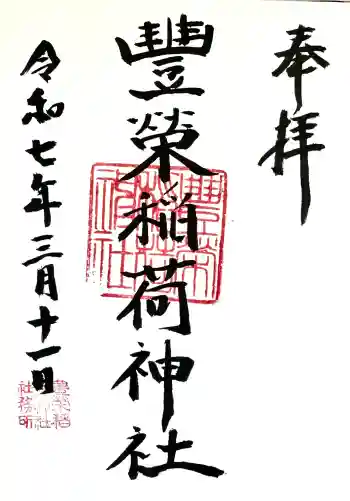 奉拝
豐榮稲荷神社
令和七年三月十一日
豊榮稲
荷神社
社務所